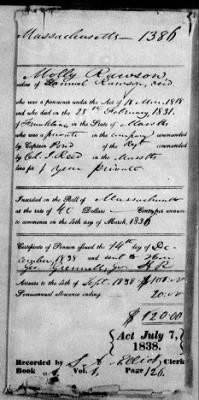 Massachusetts 1386
Molly Rawson,
widow of Samuel Rawson, dec'd
who was a pensioner under the Act of 18 Mar. 1818
and who died on the 28th February 1831.
of Franklin in the State of Mass'tts
who was a private in the company commanded
by Captain of the Reg't commanded
by Col. J. Reed in the Mass'tts
line for 1 year private
Inscribed on the Roll of Massachusetts
at the rate of 40 Dollars Cents per annum
to commence on the 4th day of March, 1836
Certificate of Pension issued the 14th day of De-
cember, 1838 and sent to Hon
Geo. Grennell, Jr. H. R.
Arrears to the 4th of Sept. 1838 $100.00
Semi-annual allowance ending 20.00
$120.00
Act July 7,
1838.
Recorded by S. A. Elliot, Clerk
Book Vol. 1, Page 126.